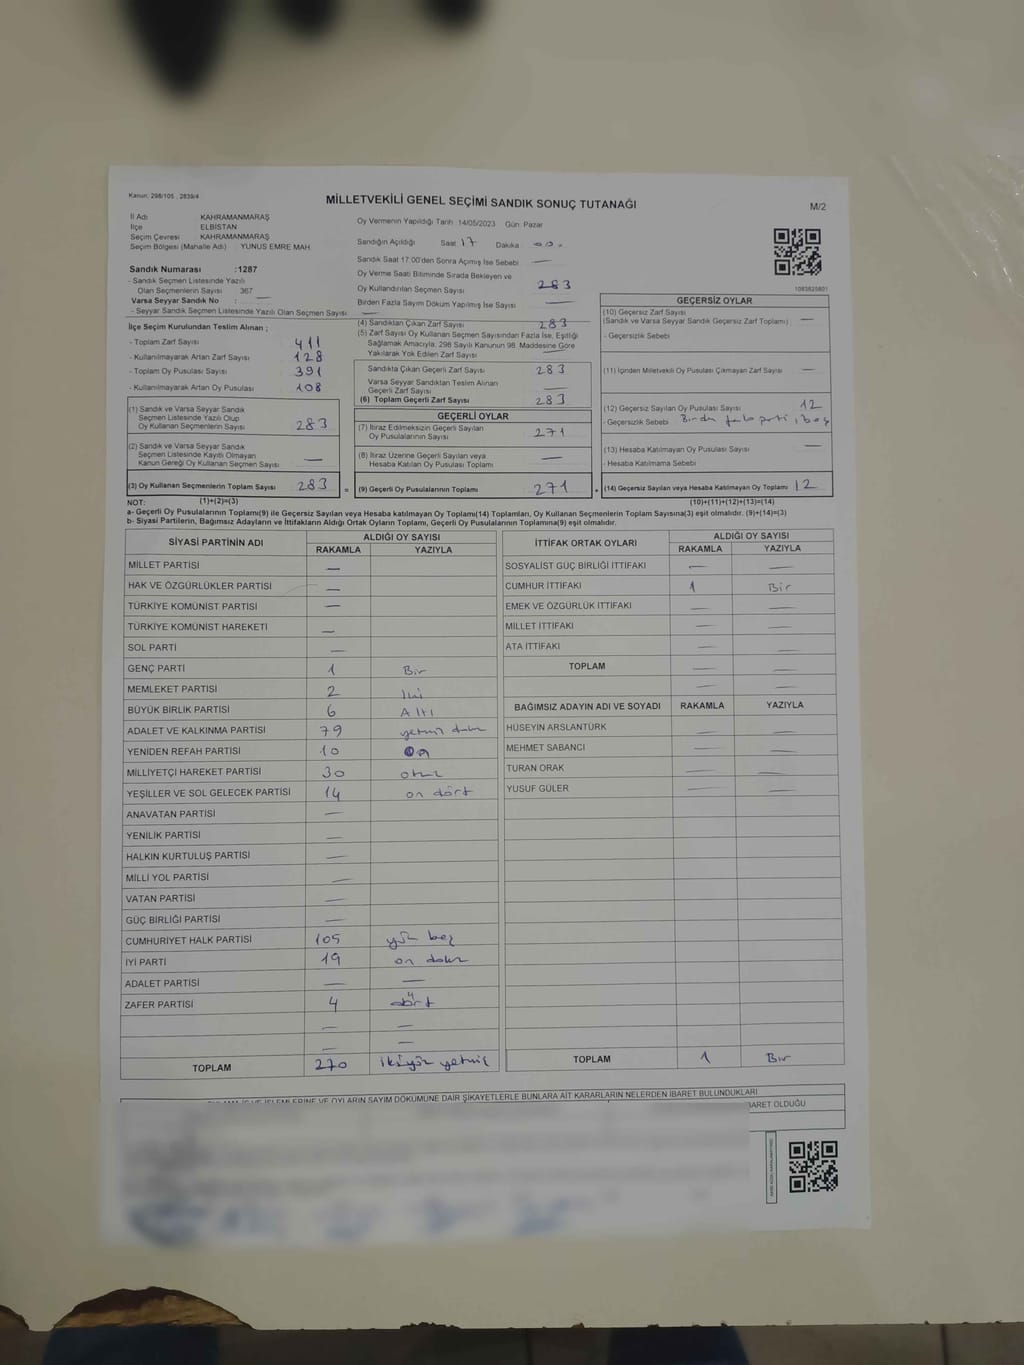 Kanun: 298/105 , 2839/4
MİLLETVEKİLİ GENEL SEÇİMİ SANDIK SONUÇ TUTANAĞI
M/2
İl Adı KAHRAMANMARAŞ
İlçe ELBİSTAN
Seçim Çevresi KAHRAMANMARAŞ
Seçim Bölgesi (Mahalle Adı) YUNUS EMRE MAH
Sandık Numarası :1287
- Sandık Seçmen Listesinde Yazılı
Olan Seçmenlerin Sayısı 367
Varsa Seyyar Sandık No : —
- Seyyar Sandık Seçmen Listesinde Yazılı Olan Seçmen Sayısı: —
İlçe Seçim Kurulundan Teslim Alınan ;
- Toplam Zarf Sayısı 411
- Kullanılmayarak Artan Zarf Sayısı 128
- Toplam Oy Pusulası Sayısı 391
- Kullanılmayarak Artan Oy Pusulası 108
(1) Sandık ve Varsa Seyyar Sandık
Seçmen Listesinde Yazılı Olup
Oy Kullanan Seçmenlerin Sayısı 283
(2) Sandık ve Varsa Seyyar Sandık
Seçmen Listesinde Kayıtlı Olmayan
Kanun Gereği Oy Kullanan Seçmen Sayısı —
(3) Oy Kullanan Seçmenlerin Toplam Sayısı 283 =
Oy Vermenin Yapıldığı Tarih :14/05/2023 Gün: Pazar
Sandığın Açıldığı Saat 17 Dakika 00
Sandık Saat 17.00'den Sonra Açımış İse Sebebi —
Oy Verme Saati Bitiminde Sırada Bekleyen ve
Oy Kullandırılan Seçmen Sayısı 283
Birden Fazla Sayım Döküm Yapılmış İse Sayısı —
(4) Sandıktan Çıkan Zarf Sayısı 283
(5) Zarf Sayısı Oy Kullanan Seçmen Sayısından Fazla İse, Eşitliği
Sağlamak Amacıyla, 298 Sayılı Kanunun 98. Maddesine Göre
Yakılarak Yok Edilen Zarf Sayısı —
Sandıkta Çıkan Geçerli Zarf Sayısı 283
Varsa Seyyar Sandıktan Teslim Alınan
Geçerli Zarf Sayısı —
(6) Toplam Geçerli Zarf Sayısı 283
GEÇERLİ OYLAR
(7) İtiraz Edilmeksizin Geçerli Sayılan
Oy Pusulalarının Sayısı 271
(8) İtiraz Üzerine Geçerli Sayılan veya
Hesaba Katılan Oy Pusulası Toplamı —
(9) Geçerli Oy Pusulalarının Toplamı 271 +
1083825801
GEÇERSİZ OYLAR
(10) Geçersiz Zarf Sayısı
(Sandık ve Varsa Seyyar Sandık Geçersiz Zarf Toplamı) : —
- Geçersizlik Sebebi
(11) İçinden Milletvekili Oy Pusulası Çıkmayan Zarf Sayısı —
(12) Geçersiz Sayılan Oy Pusulası Sayısı 12
- Geçersizlik Sebebi parti, boş
(13) Hesaba Katılmayan Oy Pusulası Sayısı —
- Hesaba Katılmama Sebebi
(14) Geçersiz Sayılan veya Hesaba Katılmayan Oy Toplamı 12
NOT: (1)+(2)=(3) (10)+(11)+(12)+(13)=(14)
a- Geçerli Oy Pusulalarının Toplamı(9) ile Geçersiz Sayılan veya Hesaba katılmayan Oy Toplamı(14) Toplamları, Oy Kullanan Seçmenlerin Toplam Sayısına(3) eşit olmalıdır. (9)+(14)=(3)
b- Siyasi Partilerin, Bağımsız Adayların ve İttifakların Aldığı Ortak Oyların Toplamı, Geçerli Oy Pusulalarının Toplamına(9) eşit olmalıdır.
SİYASİ PARTİNİN ADI ALDIĞI OY SAYISI
RAKAMLA YAZIYLA
MİLLET PARTİSİ —
HAK VE ÖZGÜRLÜKLER PARTİSİ —
TÜRKİYE KOMÜNİST PARTİSİ —
TÜRKİYE KOMÜNİST HAREKETİ —
SOL PARTİ —
GENÇ PARTİ 1 Bir
MEMLEKET PARTİSİ 2 İki
BÜYÜK BİRLİK PARTİSİ 6 Altı
ADALET VE KALKINMA PARTİSİ 79 yetmiş dokuz
YENİDEN REFAH PARTİSİ 10 on
MİLLİYETÇİ HAREKET PARTİSİ 30 otuz
YEŞİLLER VE SOL GELECEK PARTİSİ 14 on dört
ANAVATAN PARTİSİ —
YENİLİK PARTİSİ —
HALKIN KURTULUŞ PARTİSİ —
MİLLİ YOL PARTİSİ —
VATAN PARTİSİ —
GÜÇ BİRLİĞİ PARTİSİ —
CUMHURİYET HALK PARTİSİ 105 yüz beş
İYİ PARTİ 19 on dokuz
ADALET PARTİSİ — —
ZAFER PARTİSİ 4 dört
— —
— —
TOPLAM 270 ikiyüz yetmiş
İTTİFAK ORTAK OYLARI ALDIĞI OY SAYISI
RAKAMLA YAZIYLA
SOSYALİST GÜÇ BİRLİĞİ İTTİFAKI — —
CUMHUR İTTİFAKI 1 Bir
EMEK VE ÖZGÜRLÜK İTTİFAKI — —
MİLLET İTTİFAKI — —
ATA İTTİFAKI — —
TOPLAM — —
— —
BAĞIMSIZ ADAYIN ADI VE SOYADI RAKAMLA YAZIYLA
HÜSEYİN ARSLANTÜRK — —
MEHMET SABANCI — —
TURAN ORAK — —
YUSUF GÜLER — —
TOPLAM 1 Bir
İŞLEMLERİNE VE OYLARIN SAYIM DÖKÜMÜNE DAİR ŞİKAYETLERLE BUNLARA AİT KARARLARIN NELERDEN İBARET BULUNDUKLARI
BARET OLDUĞU